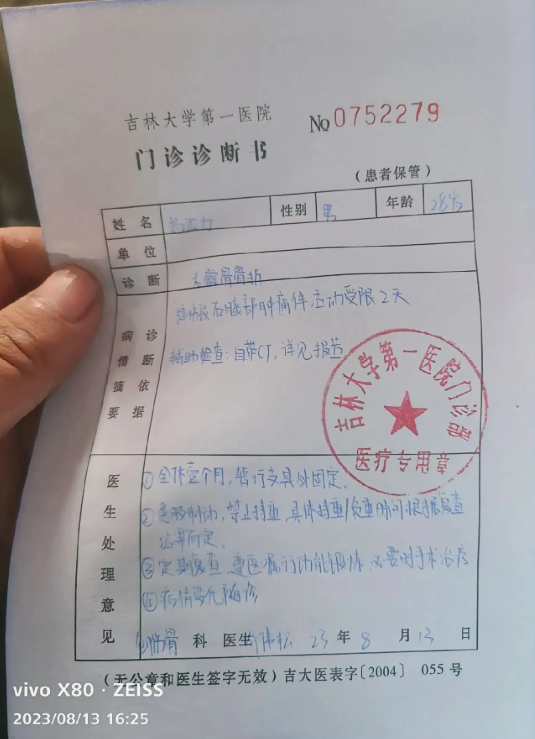 吉林大学第一医院
No 0752279
门诊诊断书
(患者保管)
姓名 性别 男 年龄 28岁
单位
诊断 骨折
诊断依据 病情摘要
右 部肿痛伴活动受限2天
辅助检查:自带CT,详见报告
吉林大学第一医院门诊部
医疗专用章
医生处理意见
①全休壹个月,暂行支具外固定.
② 制动,禁止持重,具体持重/负重时间根据复查
结果而定.
③定期复查,遵医嘱行功能锻炼,必要时手术治疗
④病情变化随诊
骨 科 医生 23 年 8 月 13 日
(无公章和医生签字无效)吉大医表字[2004] 055号
vivo X80 · ZEISS
2023/08/13 16:25